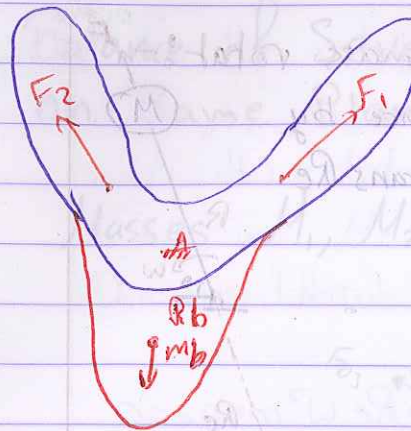 F2
F1
A
Rb
mb